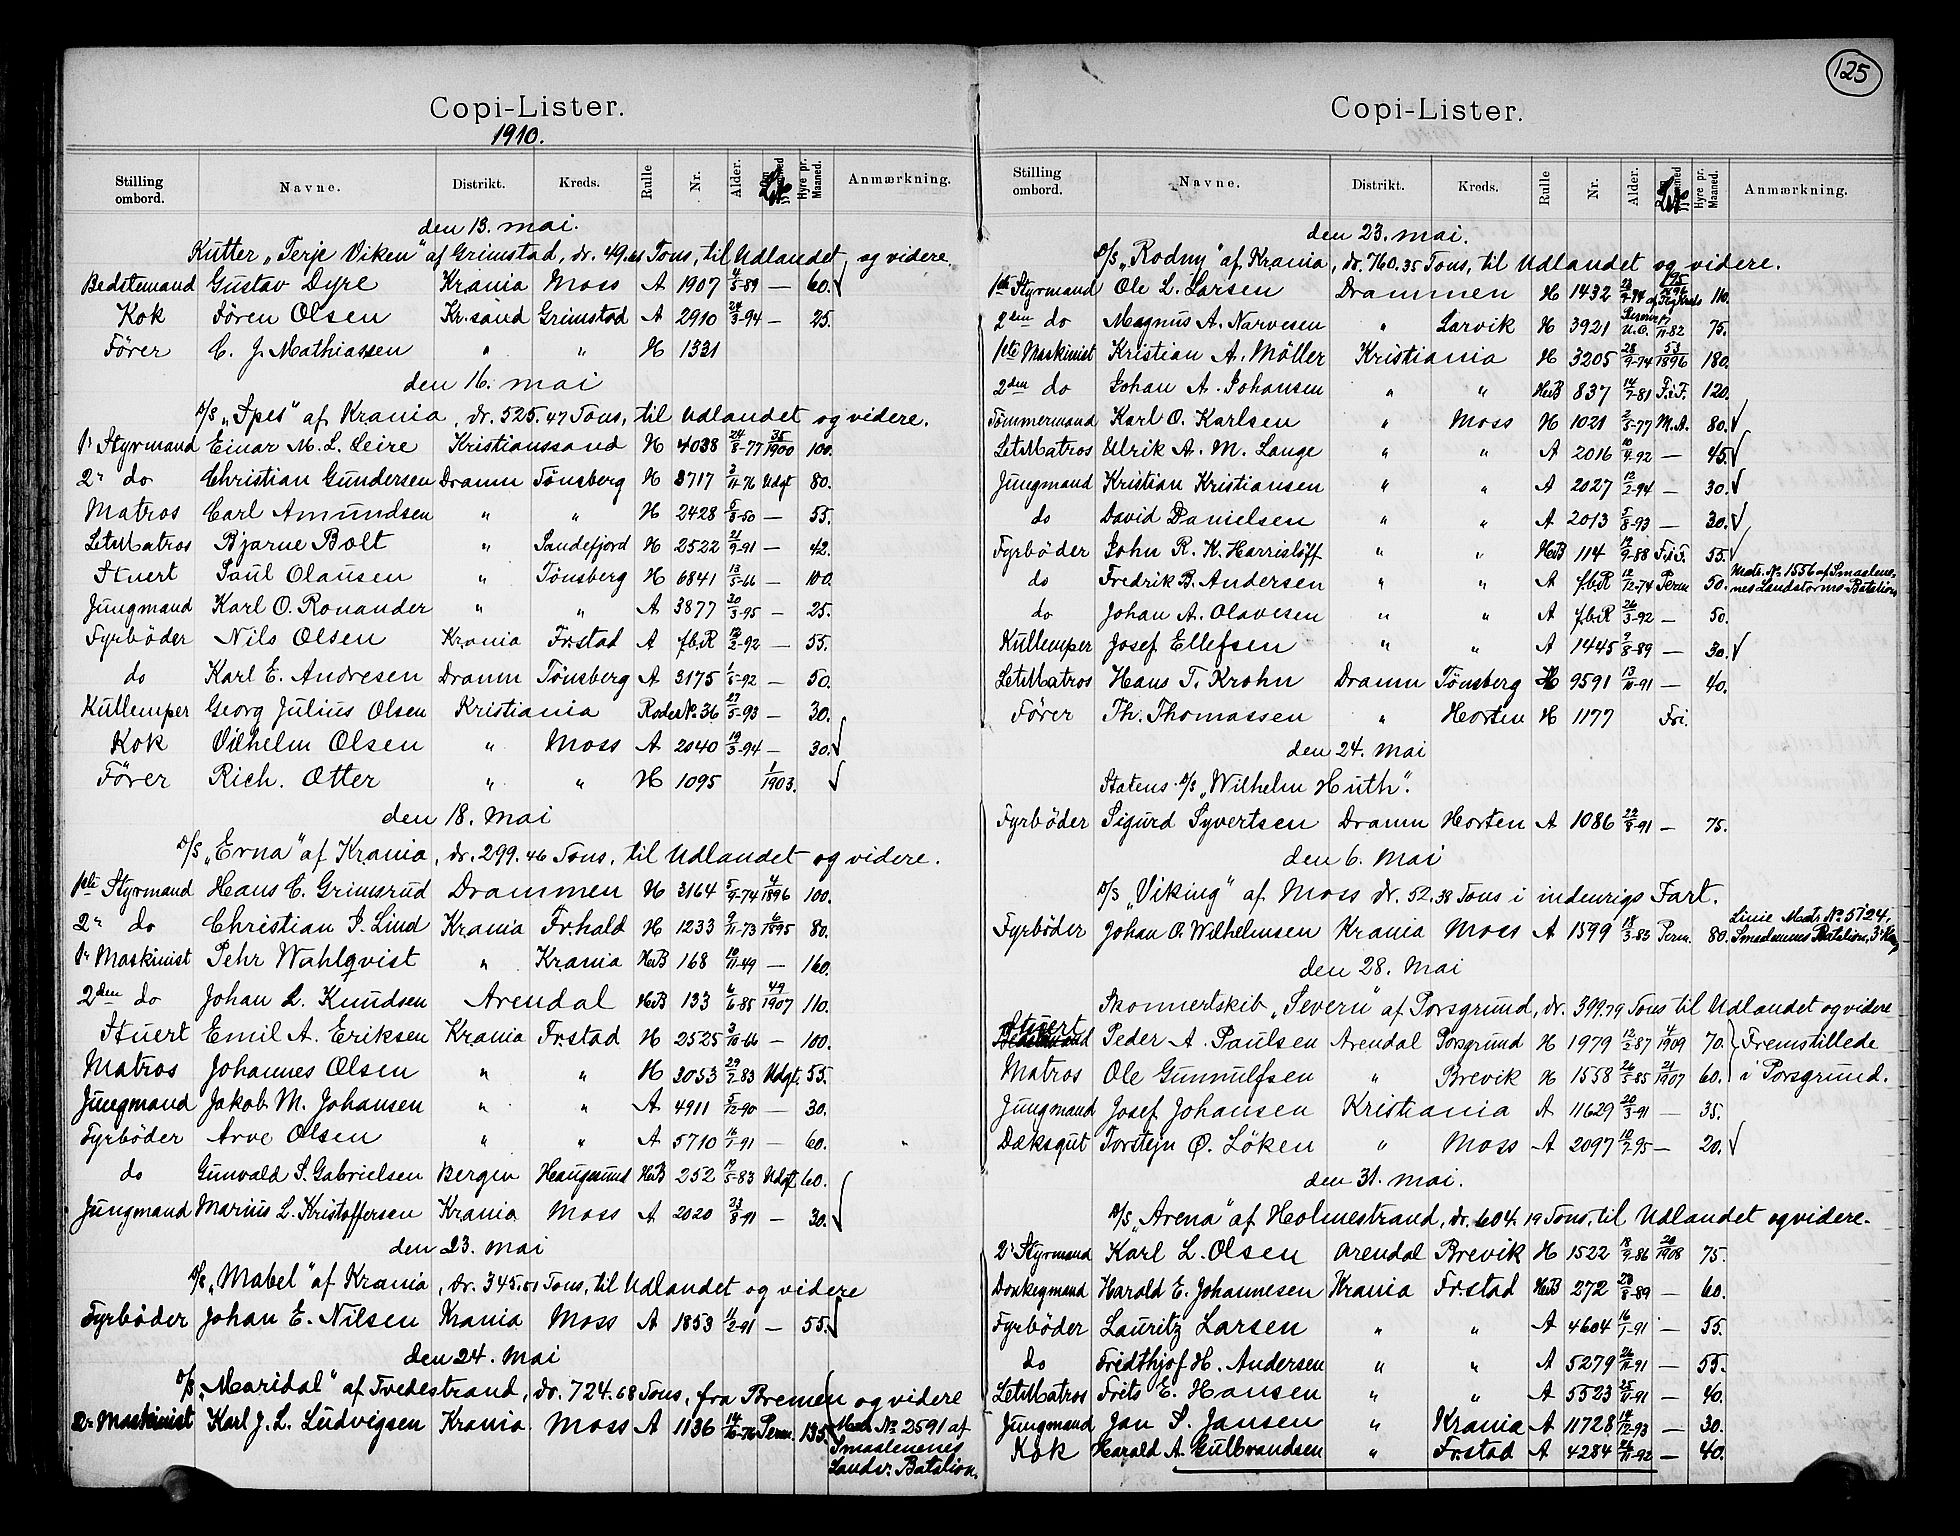 Copi-Lister.
1910.
Stilling ombord. Navne. Distrikt. Kreds. Rulle Nr. Alder. Hyre pr. Maaned. Anmærkning.
den 13. mai.
Kutter „Terje Viken“ af Grimstad, dr. 49.61 Tons, til Udlandet og videre.
Bedstemand Gustav Dyre Krania Moss A 1907 4/5-89 — 60.
Kok Sören Olsen Kr.sand Grimstad A 2910 24/3-94 — 25.
Förer C. J. Mathiassen " " H 1331
den 16. mai
D/S „Spes“ af Krania, dr. 525.47 Tons, til Udlandet og videre.
1' Styrmand Einar M. L. Leire Kristianssand H 4038 24/8-77 35/1900 100.
2' do Christian Gundersen Dramm Tönsberg H 3717 2/11-76 Udgt 80.
Matros Carl Amundsen " " H 2428 5/3-50 — 55.
LetMatros Bjarne Bolt " Sandefjord H 2522 21/9-91 — 42.
Stuert Paul Olausen " Tönsberg H 6841 13/5-66 — 100.
Jungmand Karl O. Ronander " " A 3877 30/3-95 — 25.
Fyrböder Nils Olsen Krania Fr.stad A f.b.R 12/2-92 — 55.
do Karl E. Andresen Dramm Tönsberg A 3175 1/5-92 — 50.
Kullemper Georg Julius Olsen Kristiania Rodes No. 36 27/5-93 — 30.
Kok Vilhelm Olsen " Moss A 2040 19/3-94 — 30.
Förer Rich. Otter " " H 1095 1/1903.
den 18. Mai
D/S „Erna“ af Krania, dr. 299.46 Tons, til Udlandet og videre.
1ste Styrmand Hans C. Grimsrud Drammen H 3164 5/9-74 4/1896 100.
2' do Christian I. Lind Krania Fr.hald H 1233 9/11-73 6/1895 80.
1' Maskinist Pehr Wahlqvist " Krania H&B 168 10/11-49 — 160.
2den do Johan L. Knudsen Arendal H&B 133 6/6-85 49/1907 110.
Stuert Emil A. Eriksen Krania Fr.stad H 2525 3/10-66 — 100.
Matros Johannes Olsen " " H 3053 29/2-83 Udgt. 55.
Jungmand Jakob M. Johansen " " A 4911 5/12-90 — 30.
Fyrböder Arve Olsen " " A 5710 16/1-91 — 60.
do Gunvald S. Gabrielsen Bergen Haugesund H&B 252 19/5-83 Udgt. 60.
Jungmand Marius L. Kristoffersen Krania Moss A 2020 23/8-91 — 30.
den 23. mai
D/S „Mabel“ af Krania, dr. 345.51 Tons, til Udlandet og videre
Fyrböder Johan E. Nilsen Krania Moss A 1853 11/2-91 — 55.
den 24. Mai
D/S „Maridal“ af Tvedestrand, dr. 724.68 Tons, fra Bremen og videre
2' Maskinist Karl J. L. Ludvigsen Krania Moss A 1136 14/10-76 Perm. 135. Matr. No 2591 af
Smaalenenes
Landv. Batalion.
125
Copi-Lister.
Stilling ombord. Navne. Distrikt. Kreds. Rulle Nr. Alder. Hyre pr. Maaned. Anmærkning.
den 23. mai.
D/S „Rodny“ af Krania, dr. 760.35 Tons, til Udlandet og videre.
1ste Styrmand Ole L. Larsen Drammen H 1432 110.
2den do Magnus A. Narvesen " Larvik H 3921 75.
1ste Maskinist Kristian A. Möller Kristiania H 3205 28/9-74 53/1896 180.
2den do Johan A. Johansen " " H&B 837 14/7-81 F.i.F. 120.
Tömmermand Karl O. Karlsen " Moss H 1021 2/5-77 M.A. 80.
LetMatros Ulrik A. M. Lange " " A 2016 10/9-92 — 45.
Jungmand Kristian Kristiansen " " A 2027 12/2-94 — 30.
do David Danielsen " " A 2013 5/8-93 — 30.
Fyrböder John R. K. Harrislöff " " H&B 114 19/9-88 F.i.F. 55.
do Fredrik B. Andersen " " A f.b.R 12/12-74 Perm 50. Matr. No 1556 af Smaalene-
nes Landstorms Batalion
do Johan A. Olavesen " " A f.b.R 26/3-92 — 50.
Kullemper Josef Ellefsen " " A 1445 9/8-89 — 30.
LetMatros Hans T. Krohn Dramm Tönsberg H 9591 13/10-91 — 40.
Förer Th. Thomassen " Horten H 1177 Fri.
den 24. mai
Statens D/S „Wilhelm Huth“.
Fyrböder Sigurd Syvertsen Dramm Horten A 1086 22/8-91 — 75.
den 6. Mai
D/S „Viking“ af Moss dr. 52.38 Tons i indenrigs Fart.
Linie Matr. No 5724,
Fyrböder Johan O. Wilhelmsen Krania Moss A 1599 18/3-83 Perm. 80. Smaalenenes Batalion, 3' Komp
den 28. Mai
Skonnertskib „Severn“ af Porsgrund, dr. 399.79 Tons til Udlandet og videre
Stuert Peder A. Paulsen Arendal Porsgrund H 1979 12/2-87 4/1909 70. } Fremstillede
Matros Ole Gunnulfsen " Brevik H 1558 26/5-85 21/1907 60. i Porsgrund.
Jungmand Josef Johansen Kristiania A 11629 20/3-91 — 35.
Dæksgut Torstejn Ø. Löken " Moss A 2097 10/7-95 — 20.
den 31. mai.
D/S „Arena“ af Holmestrand, dr. 604.19 Tons, til Udlandet og videre.
2' Styrmand Karl L. Olsen Arendal Brevik H 1522 18/9-86 20/1908 75.
Donkeymand Harald E. Johannesen Krania Fr.stad H&B 272 28/8-89 — 60.
Fyrböder Lauritz Larsen " " A 4604 16/1-91 — 55.
do Fridthjof H. Andersen " " A 5279 26/11-91 — 55.
LetMatros Frits E. Hansen " " A 5523 25/11-91 — 40.
Jungmand Jan S. Jansen " Krania A 11728 18/12-93 — 30.
Kok Harald A. Gulbrandsen " Fr.stad A 4284 24/11-92 — 40.